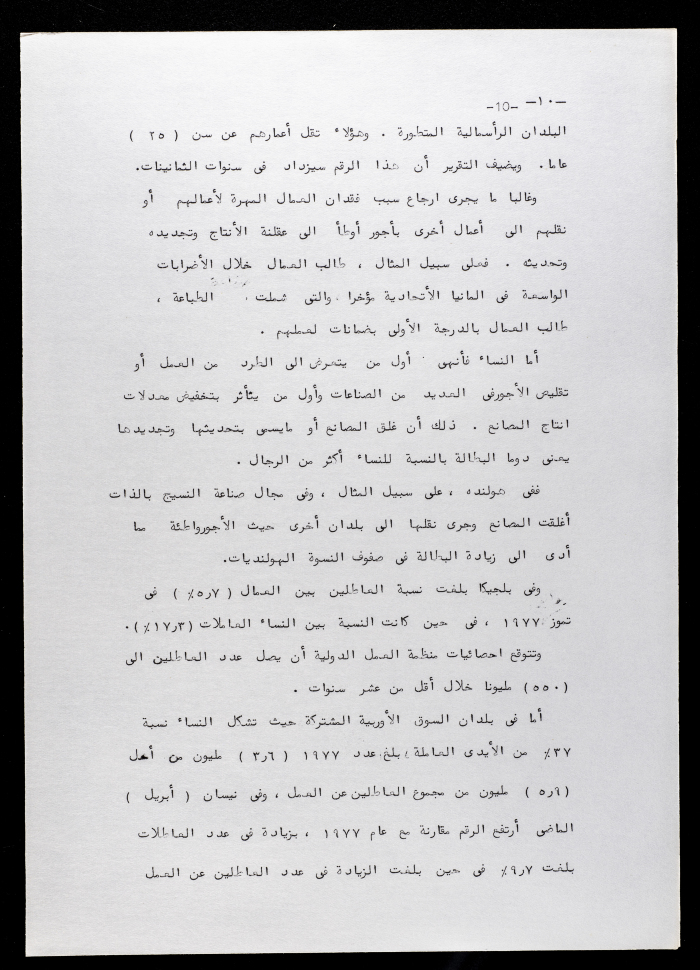 -١٠-
-10-
البلدان الرأسمالية المتطورة . وهؤلاء تقل أعمارهم عن سن ( ٢٥ )
عاما. ويضيف التقرير أن هذا الرقم سيزداد فى سنوات الثمانينات.
وغالبا ما يجرى ارجاع سبب فقدان العمال المهرة لأعمالهم أو
نقلهم الى أعمال أخرى بأجور أوطأ الى عقلنة الأنتاج وتجديده
وتحديثه . فعلى سبيل المثال ، طالب العمال خلال الأضرابات
الواسعة فى المانيا الأتحادية مؤخرا والتى شملت الطباعة ،
طالب العمال بالدرجة الأولى بضمانات لعملهم .
أما النساء فأنهى أول من يتعرض الى الطرد من العمل أو
تقليص الأجورفى العديد من الصناعات وأول من يتأثر بتخفيض معدلات
انتاج المصانع . ذلك أن غلق المصانع أو مايسمى بتحديثها وتجديدها
يعنى دوما البطالة بالنسبة للنساء أكثر من الرجال .
ففى هولنده ، على سبيل المثال ، وفى مجال صناعة النسيج بالذات
أغلقت المصانع وجرى نقلها الى بلدان أخرى حيث الأجورواطئة مما
أدى الى زيادة البطالة فى صفوف النسوة الهولنديات.
وفى بلجيكا بلغت نسبة العاطلين بين العمال ( ٥٫٧٪ ) فى
تموز ١٩٧٧ ، فى حين كانت النسبة بين النساء العاملات (١٧٫٣٪).
وتتوقع احصائيات منظمة العمل الدولية أن يصل عدد العاطلين الى
(٥٥٠) مليونا خلال أقل من عشر سنوات .
أما فى بلدان السوق الأوربية المشتركة حيث تشكل النساء نسبة
٣٧٪ من الأيدى العاملة ، بلغ عدد ١٩٧٧ ( ٣٫٦ ) مليون من أصل
(٥٫٩ ) مليون من مجموع العاطلين عن العمل ، وفى نيسان ( أبريل )
الماضى أرتفع الرقم مقارنة مع عام ١٩٧٧ ، بزيادة فى عدد العاطلات
بلغت ٩٫٧٪ فى حين بلغت الزيادة فى عدد العاطلين عن العمل